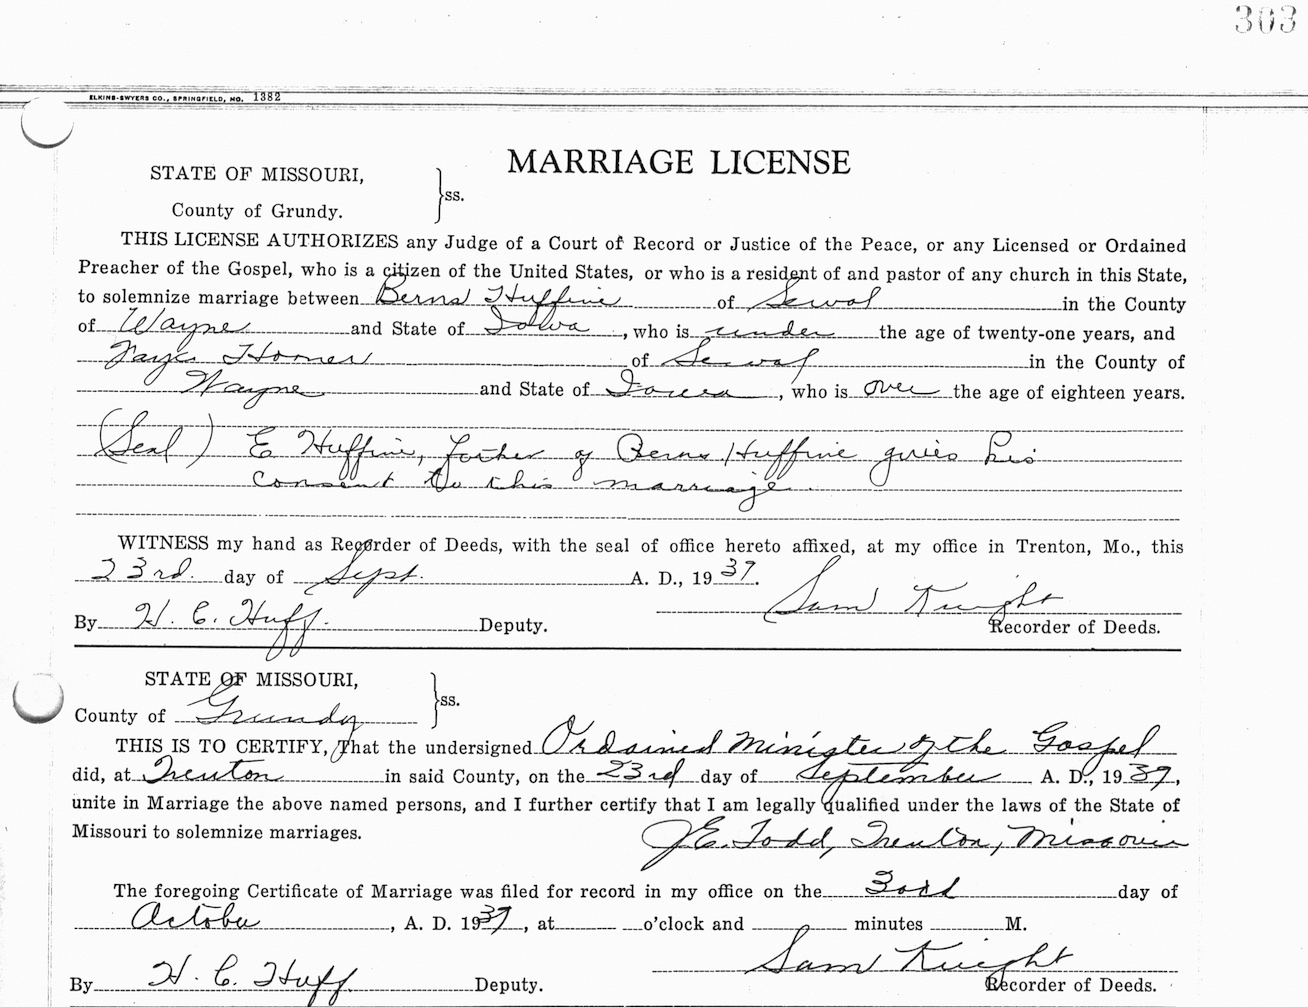 303
ELKINS-SWYERS CO., SPRINGFIELD, MO. 1382
MARRIAGE LICENSE
STATE OF MISSOURI,
County of Grundy.
}ss.
THIS LICENSE AUTHORIZES any Judge of a Court of Record or Justice of the Peace, or any Licensed or Ordained
Preacher of the Gospel, who is a citizen of the United States, or who is a resident of and pastor of any church in this State,
to solemnize marriage between Berns Huffine of Sewal in the County
of Wayne and State of Iowa, who is under the age of twenty-one years, and
Faye Horner of Sewal in the County of
Wayne and State of Iowa, who is over the age of eighteen years.
(Seal) E Huffine, father of Berns Huffine gives his
consent to this marriage.
WITNESS my hand as Recorder of Deeds, with the seal of office hereto affixed, at my office in Trenton, Mo., this
23rd day of Sept. A. D., 1937.
Sam Knight
By H. C. Huff. Deputy. Recorder of Deeds.
STATE OF MISSOURI,
County of Grundy
}ss.
THIS IS TO CERTIFY, That the undersigned Ordained Minister of the Gospel
did, at Trenton in said County, on the 23rd day of September A. D., 1937,
unite in Marriage the above named persons, and I further certify that I am legally qualified under the laws of the State of
Missouri to solemnize marriages. J.E. Todd, Trenton, Missouri
The foregoing Certificate of Marriage was filed for record in my office on the day of
October, A. D. 1937, at o'clock and minutes M.
Sam Knight
By H. C. Huff Deputy. Recorder of Deeds.